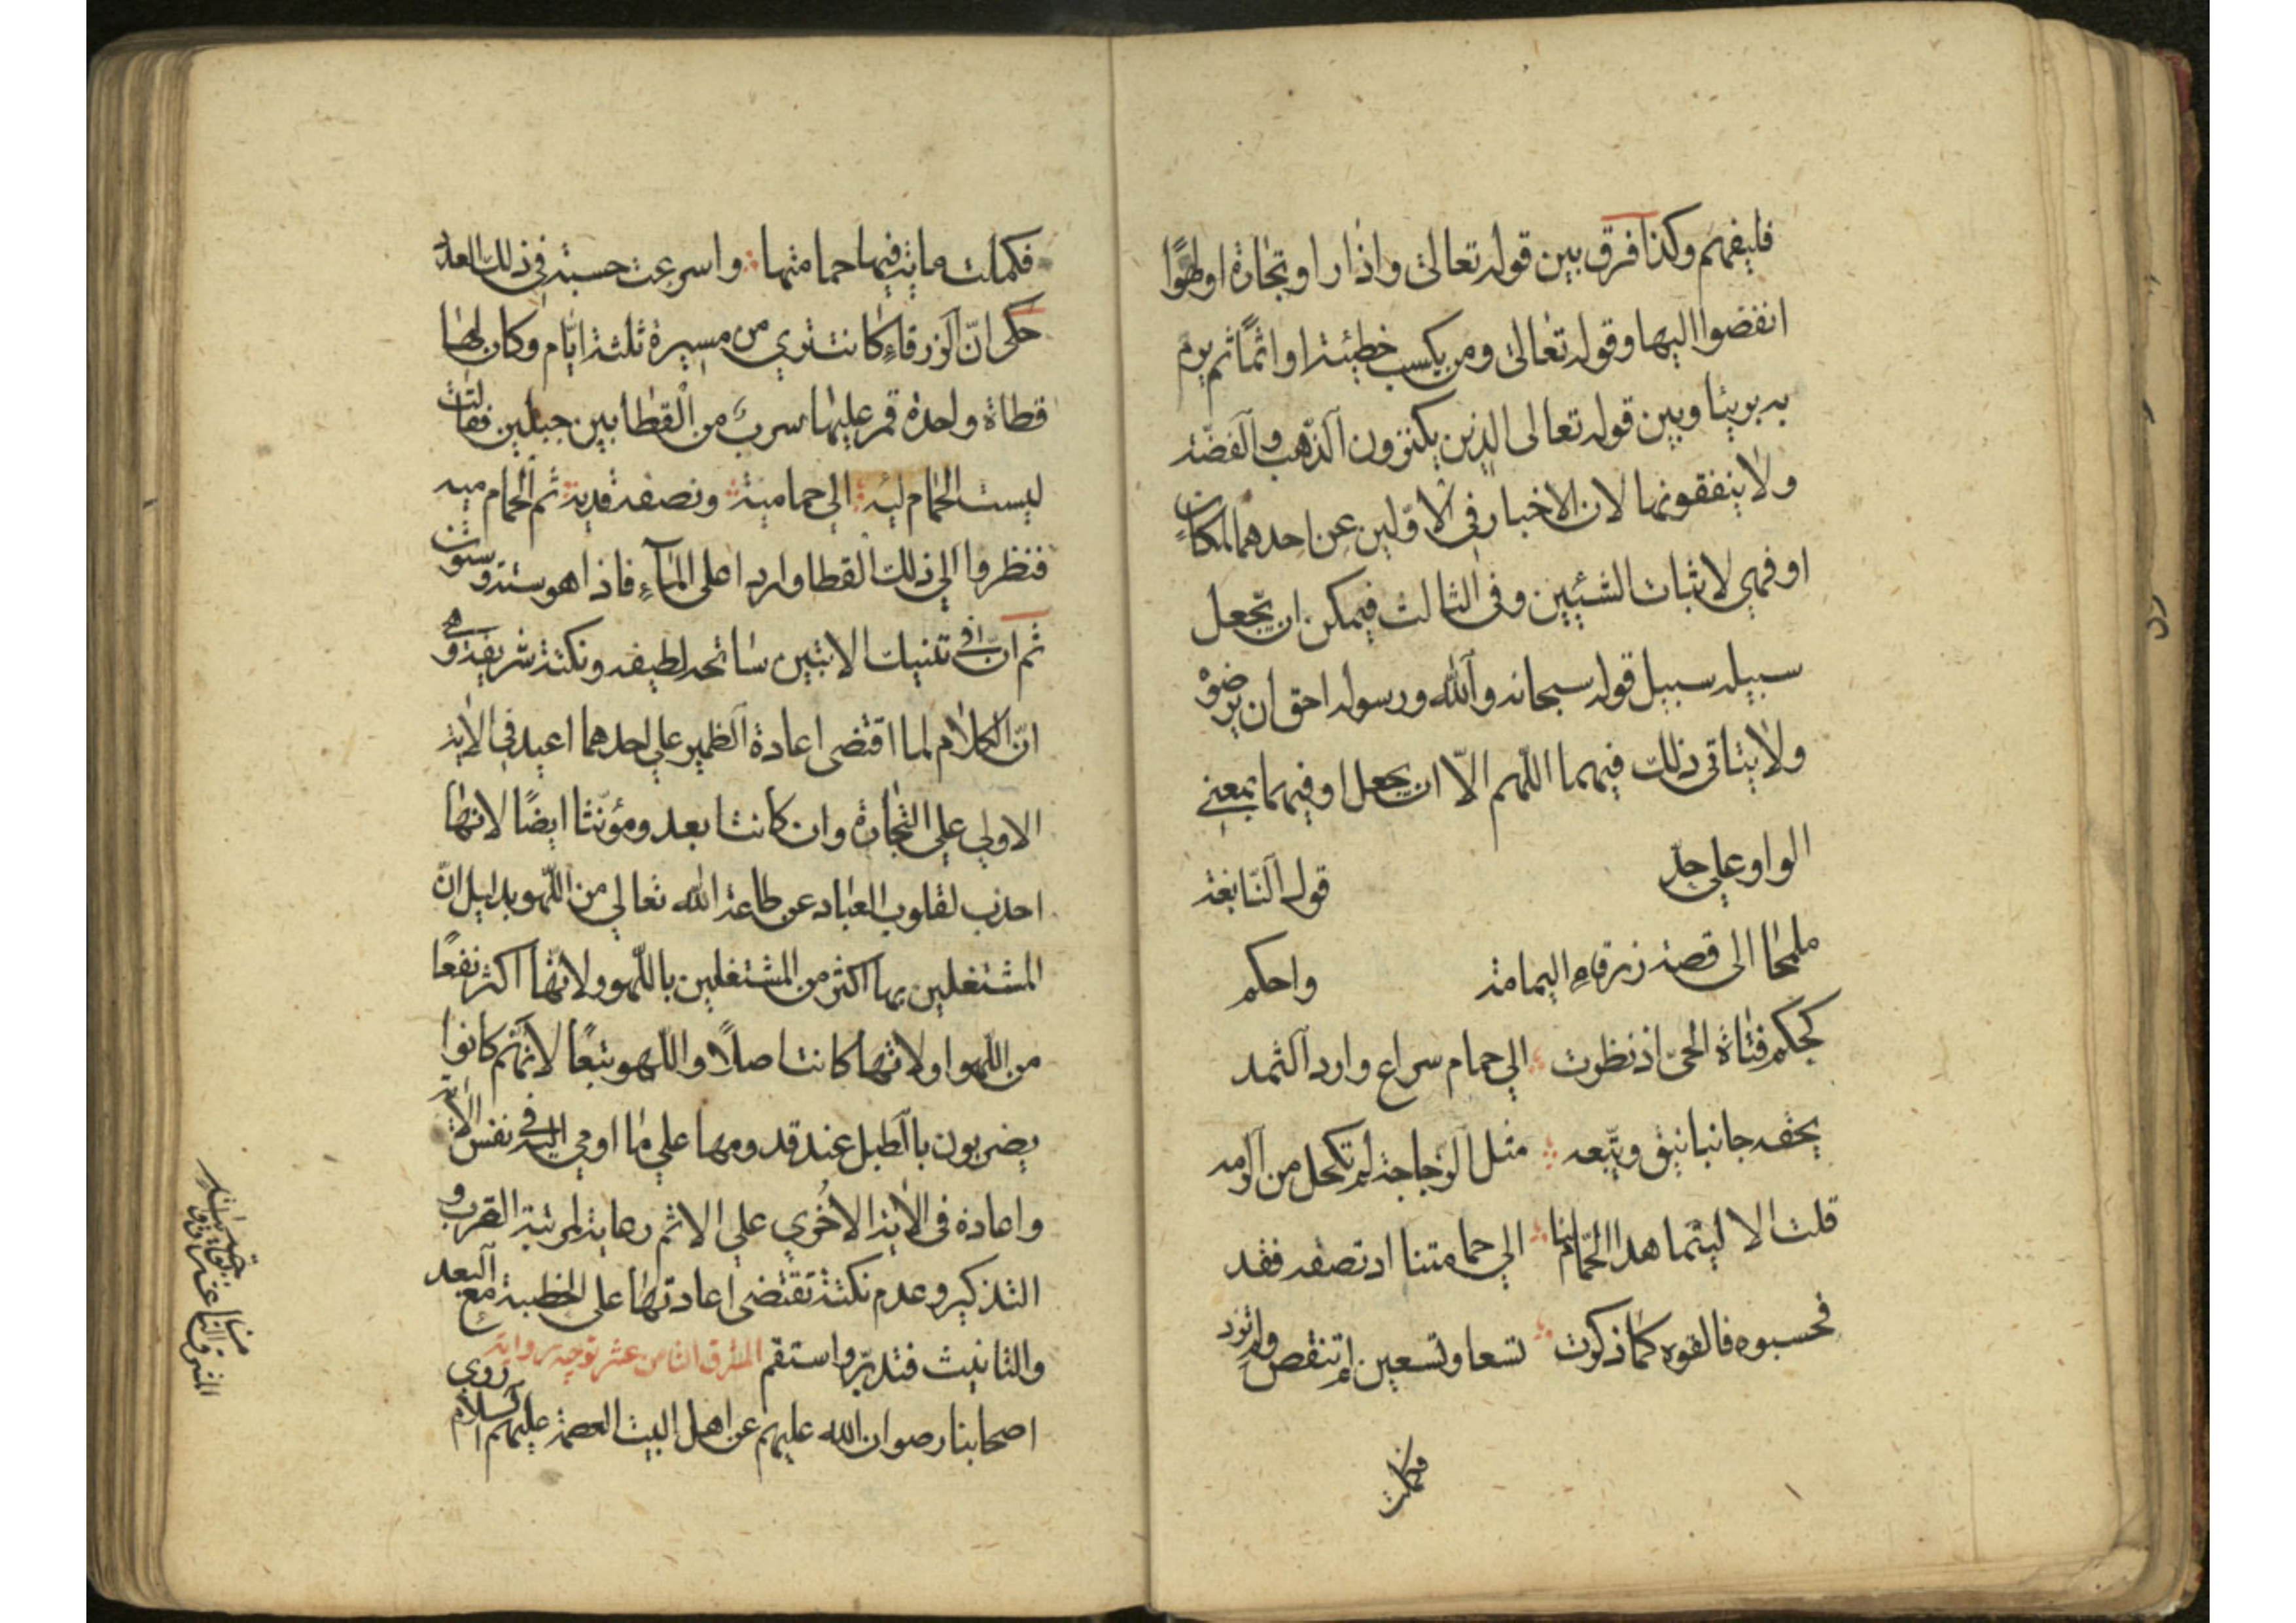 فليفهم وكذا فرق بين قوله تعالى واذا راوتجارة اولهوًا
انفضوا اليها وقوله تعالى ومن يكسب خطيئة او اثمًا ثم يرم
به بريئا وبين قوله تعالى الذين يكنزون الذّهب والفضّة
ولا ينفقونها لان الاخبار في الاوّلين عن احدهما لمكان
او فهي لاثبات الشيئين وفي الثالث فيمكن ان يجعل
سبيله سبيل قوله سبحانه والله ورسوله احق ان يرضوه
ولا يتاتى ذلك فيهما اللهم الّا ان يجعل او فيهما بمعنى
الواو على حدّ قول النّابغة
ملمحا الى قصة زرقاء اليمامة واحكم
كحكم فتاة الحىّ اذ نظرت الي حمام سراع وارد الثمد
يحفه جانبا نيق وتتبعه مثل الزجاجة لم تكحل من الرمد
قلت الا ليتما هذا الحمّام لنا الي حمامتنا او نصفه فقد
فحسبوه فالفوه كما ذكرت تسعا وتسعين لم تنقص ولم تزد
فكملت
فكملت مائة فيها حمامتها واسرعت حسبة في ذلك العدد
حكى انّ الزرقاء كانت تري من مسيرة ثلثة ايّام وكان لها
قطاة واحدة فمر عليها سرب من القطا بين جبلين فقالت
ليست الحمام ليه الي حماميه ونصفه قديه ثم الحمام ميه
فنظروا الي ذلك القطا واردا على الماء فاذا هو ستة وستون
ثم انّ في تثنيك الاثنين سانحه لطيفه ونكتة شريفة وهي
انّ الكلام لما اقتضى اعادة الظمير علي احدهما اعيد في الاية
الاولي علي التجارة وان كانت ابعد ومؤنثا ايضًا لانها
اجذب لقلوب العباد عن طاعة الله تعالي من اللّهو بدليل انّ
المشتغلين بها اكثر من المشتغلين باللّهو ولانها اكثر نفعًا
من اللّهو او لانها كانت اصلًا واللّهو تبعًا لانهم كانوا
يضربون بالطبل عند قدومها علي ما اومي اليه في نفس الاية
واعاده في الاية الاخري علي الاثم رعاية لمرتبة القرب و
التذكير وعدم نكتة تقتضى اعادتها على الخطيئة مع البعد
والتانيث فتدبّر واستقم المشرق الثامن عشر توجيه رواية روي
اصحابنا رضوان الله عليهم عن اهل البيت العصمة عليهم السلام